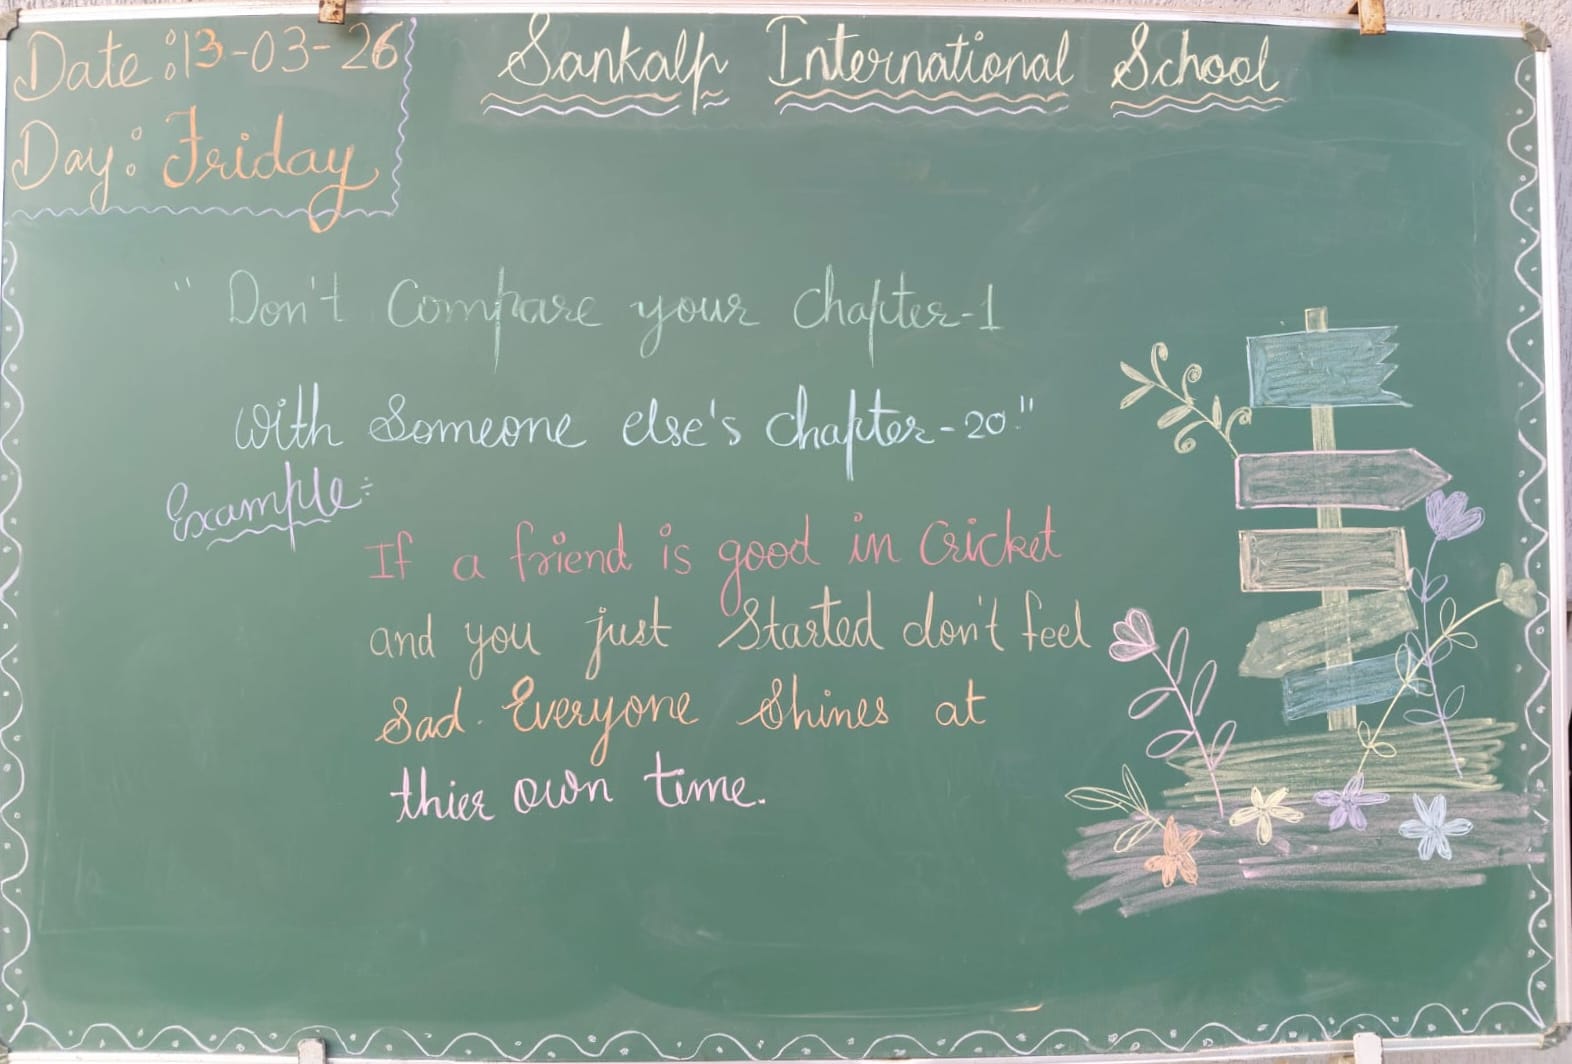 Date : 13-03-26
Day : Friday
Sankalp International School
" Don't Compare your chapter-1
with Someone else's chapter-20."
Example:-
If a friend is good in Cricket
and you just Started don't feel
Sad. Everyone Shines at
thier own time.